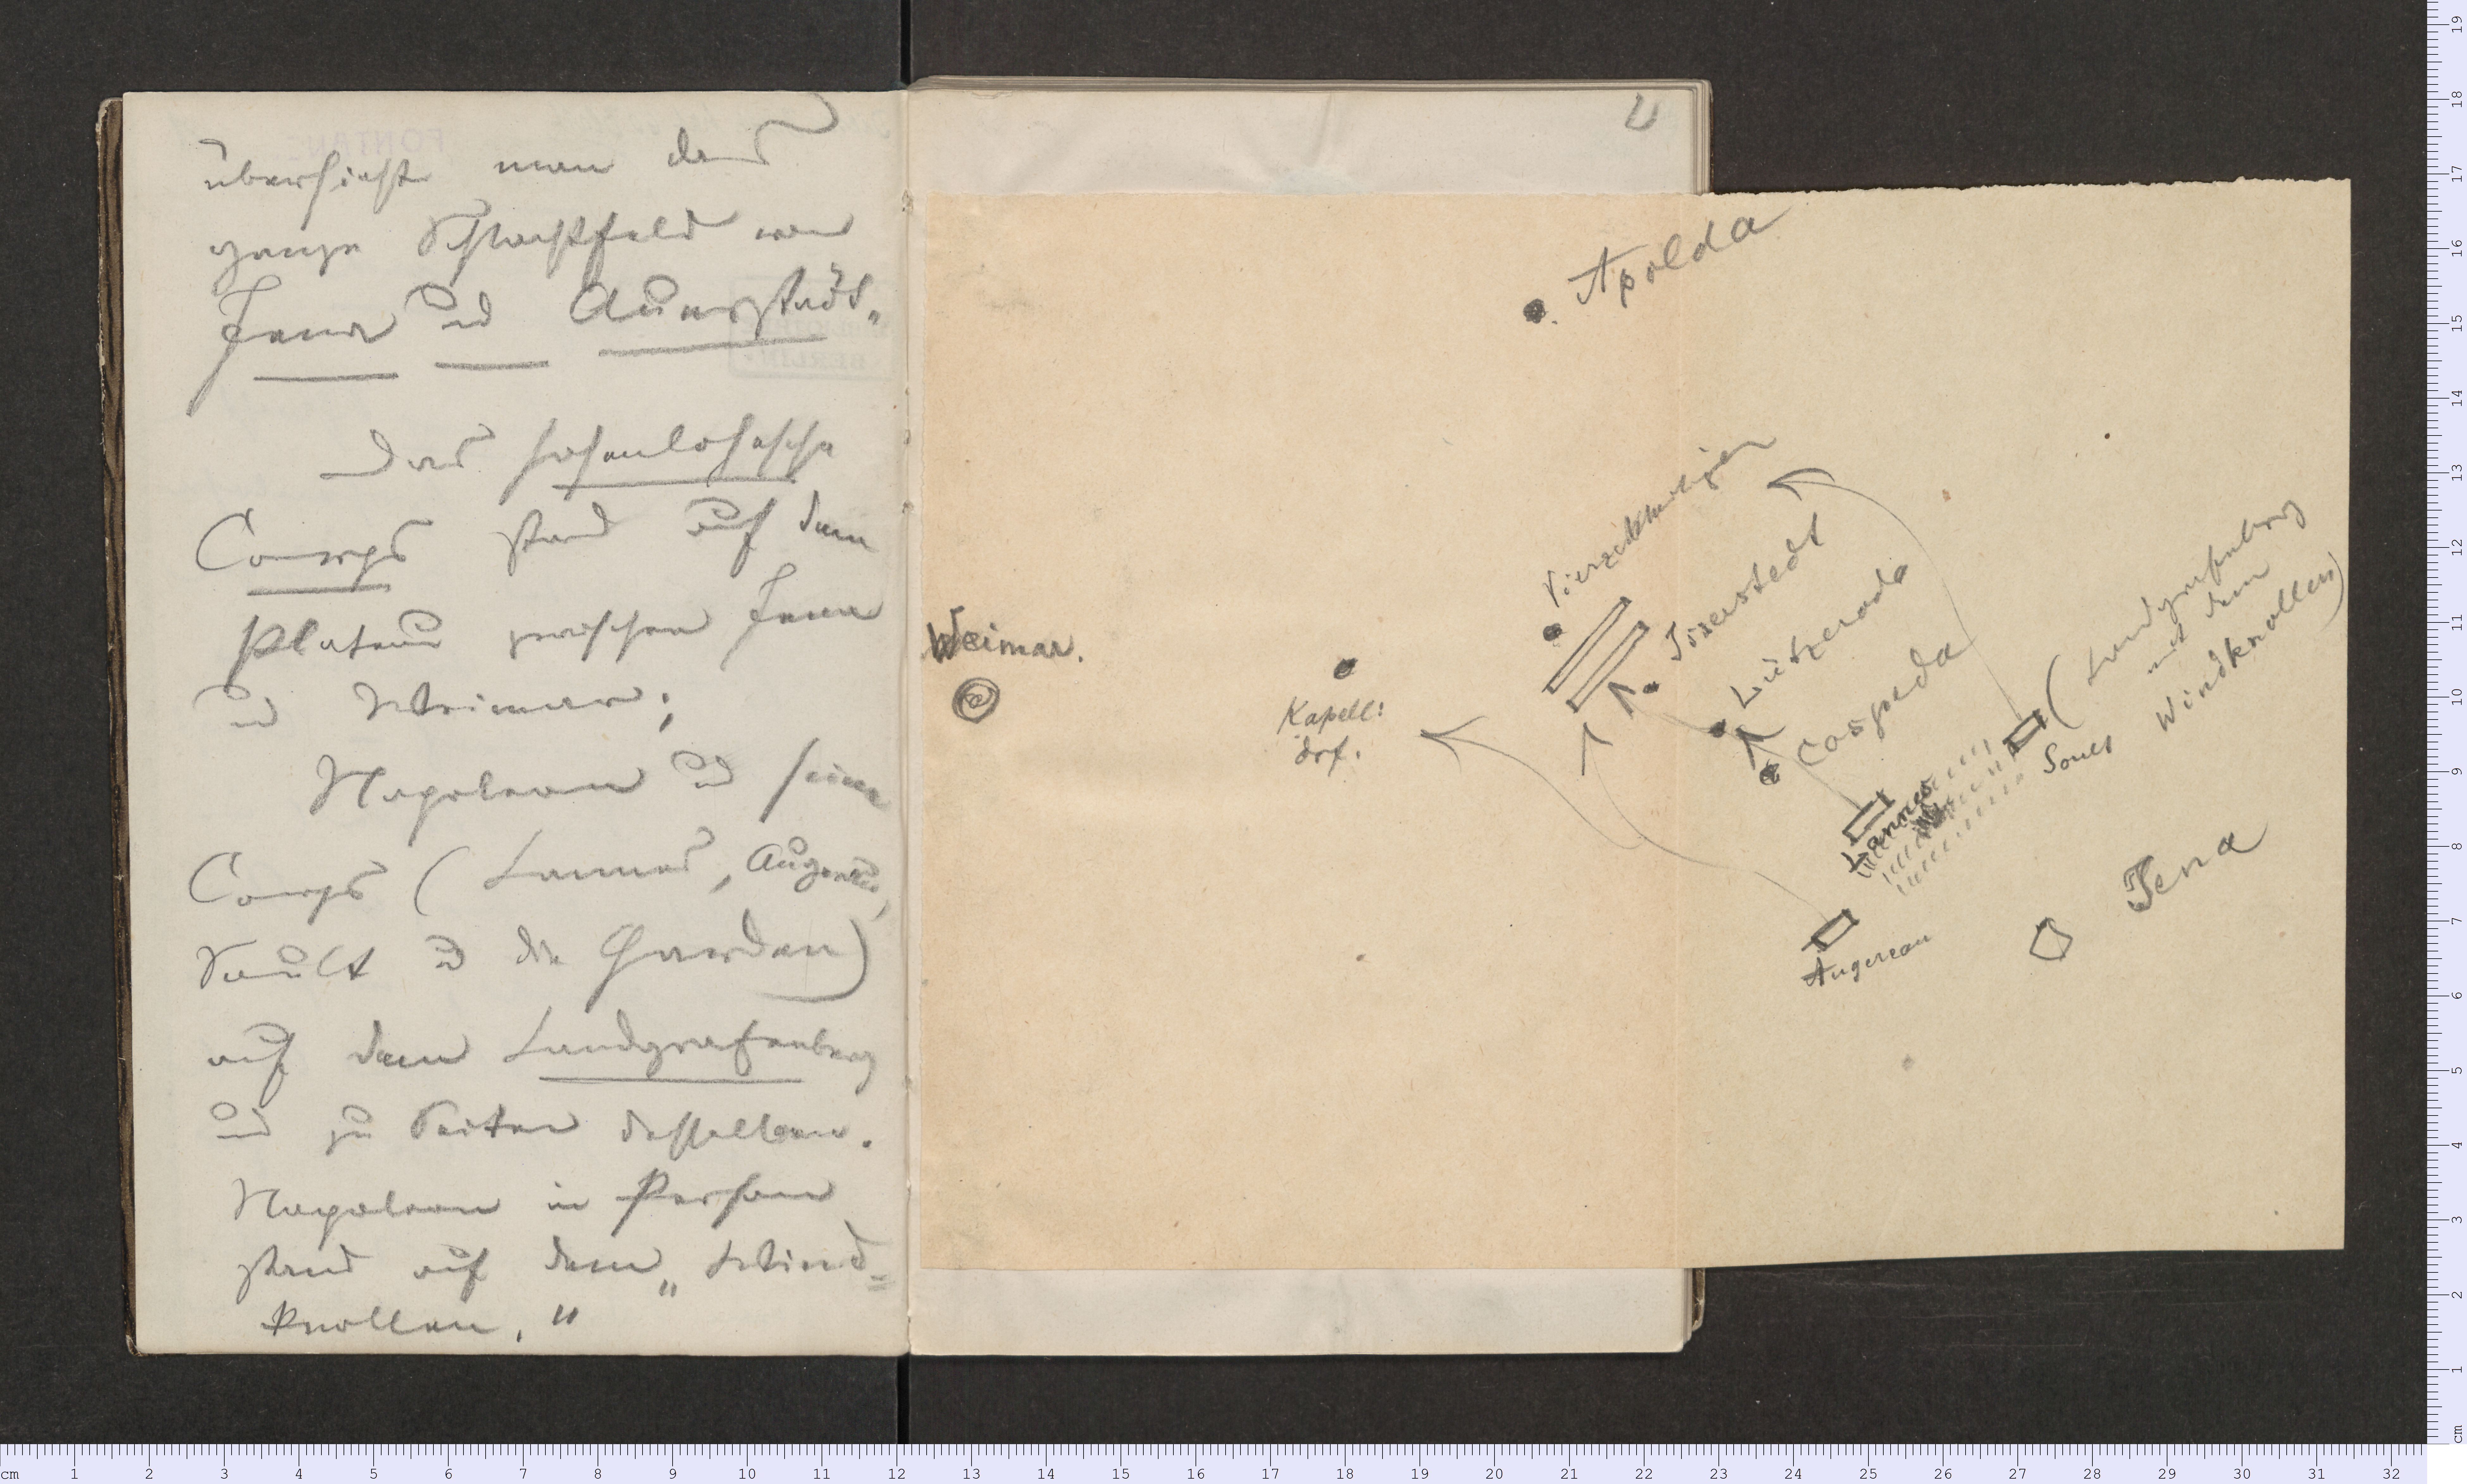 übersieht man das
ganze Schlachtfeld von
Jena und Auerstädt.
Das Hohenlohesche
Corps stand auf dem
Plateau zwischen Jena
und Weimar;
Napoleon und seine
Corps (Lannes, Augereau,
Soult u die Garden)
auf dem Landgrafenberg
und zu Seiten desselben.
Napoleon in Person
stand auf dem „Wind=
knollen."
2
Apolda
Vierzehnheiligen
Isserstedt
Lützeroda
Cospeda
(Landgrafenberg
mit dem
Windknollen)
Weimar.
Kapell:
drf.
Soult
Lannes
Augereau
Jena